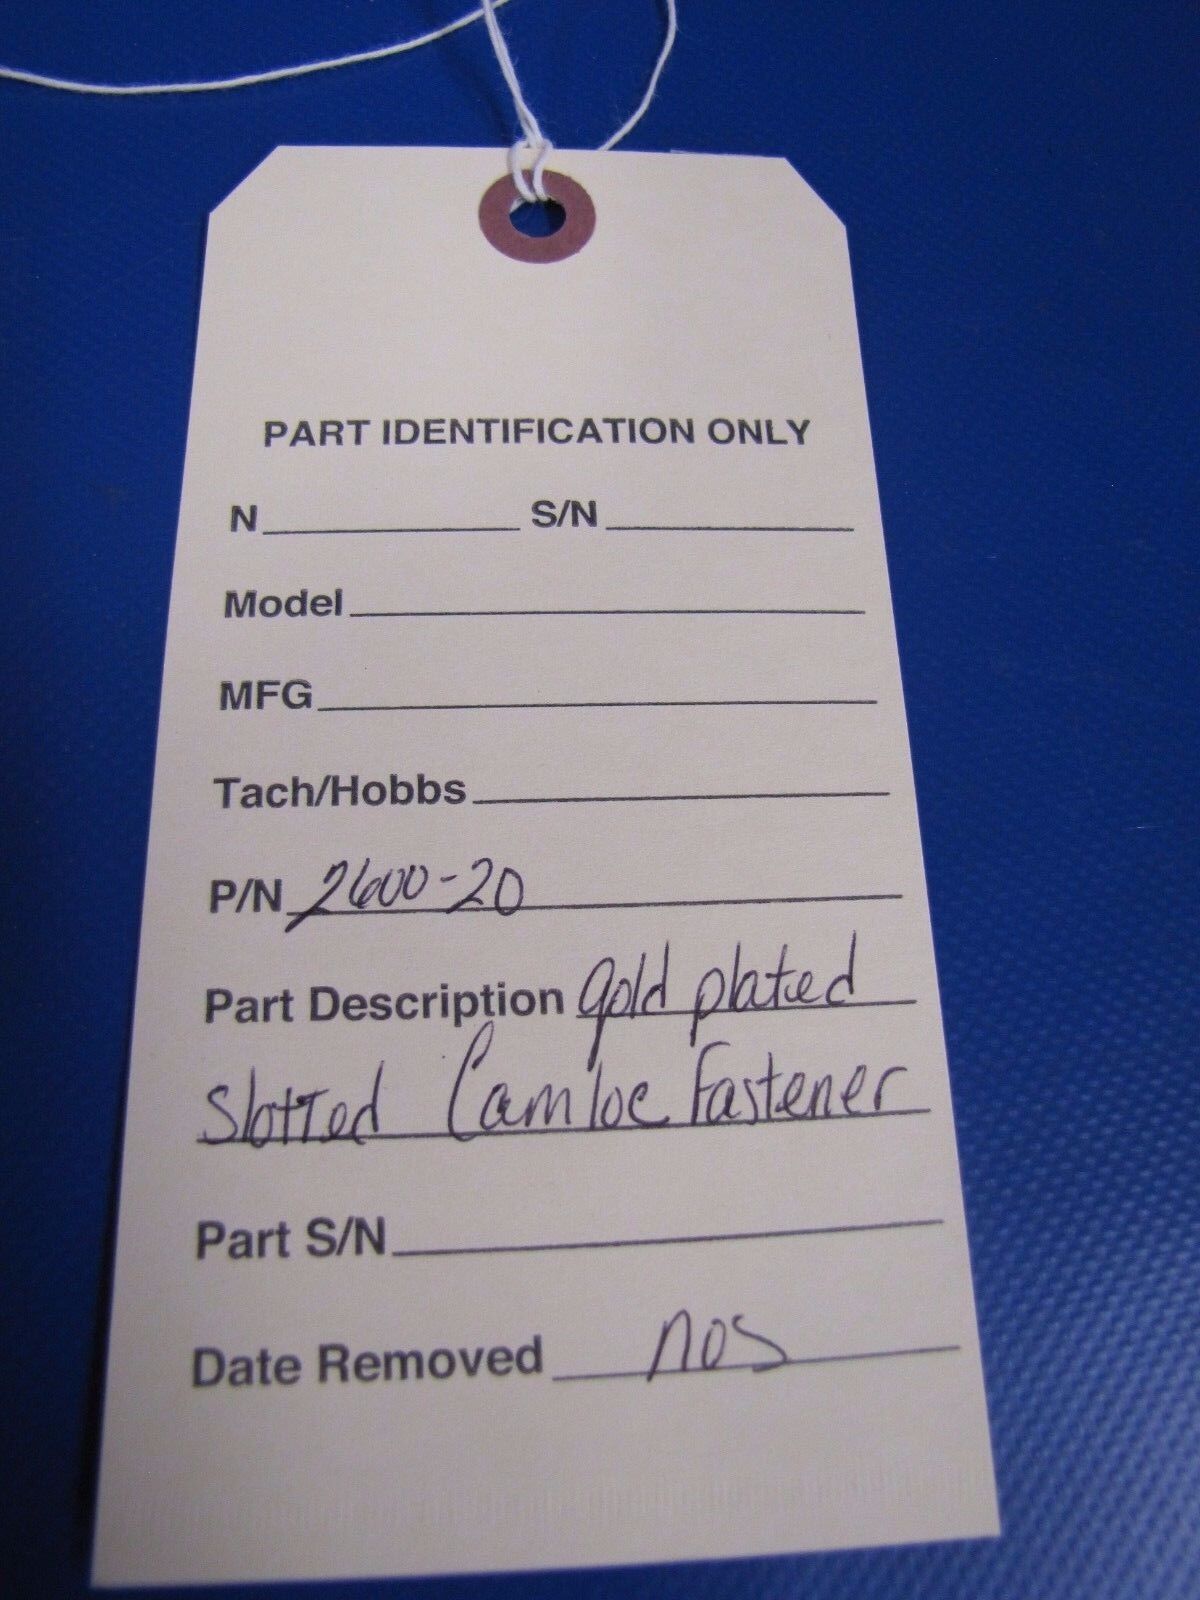 PART IDENTIFICATION ONLY
N S/N
Model
MFG
Tach/Hobbs
P/N 2600-20
Part Description gold plated
Slotted Camloc Fastener
Part S/N
Date Removed nos